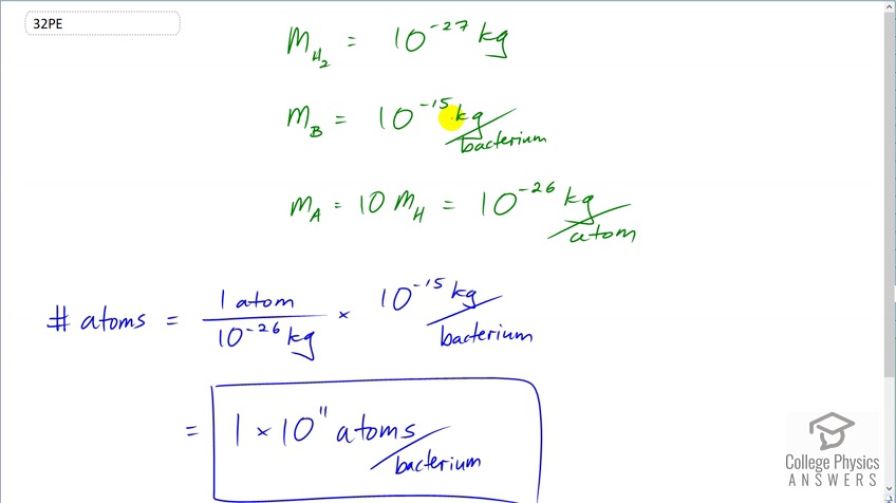 32PE
m_H₂ = 10⁻²⁷ kg
m_B = 10⁻¹⁵ kg/bacterium
m_A = 10 m_H = 10⁻²⁶ kg/atom
# atoms = 1 atom/10⁻²⁶ kg × 10⁻¹⁵ kg/bacterium
= 1 × 10¹¹ atoms/bacterium
College Physics
ANSWERS